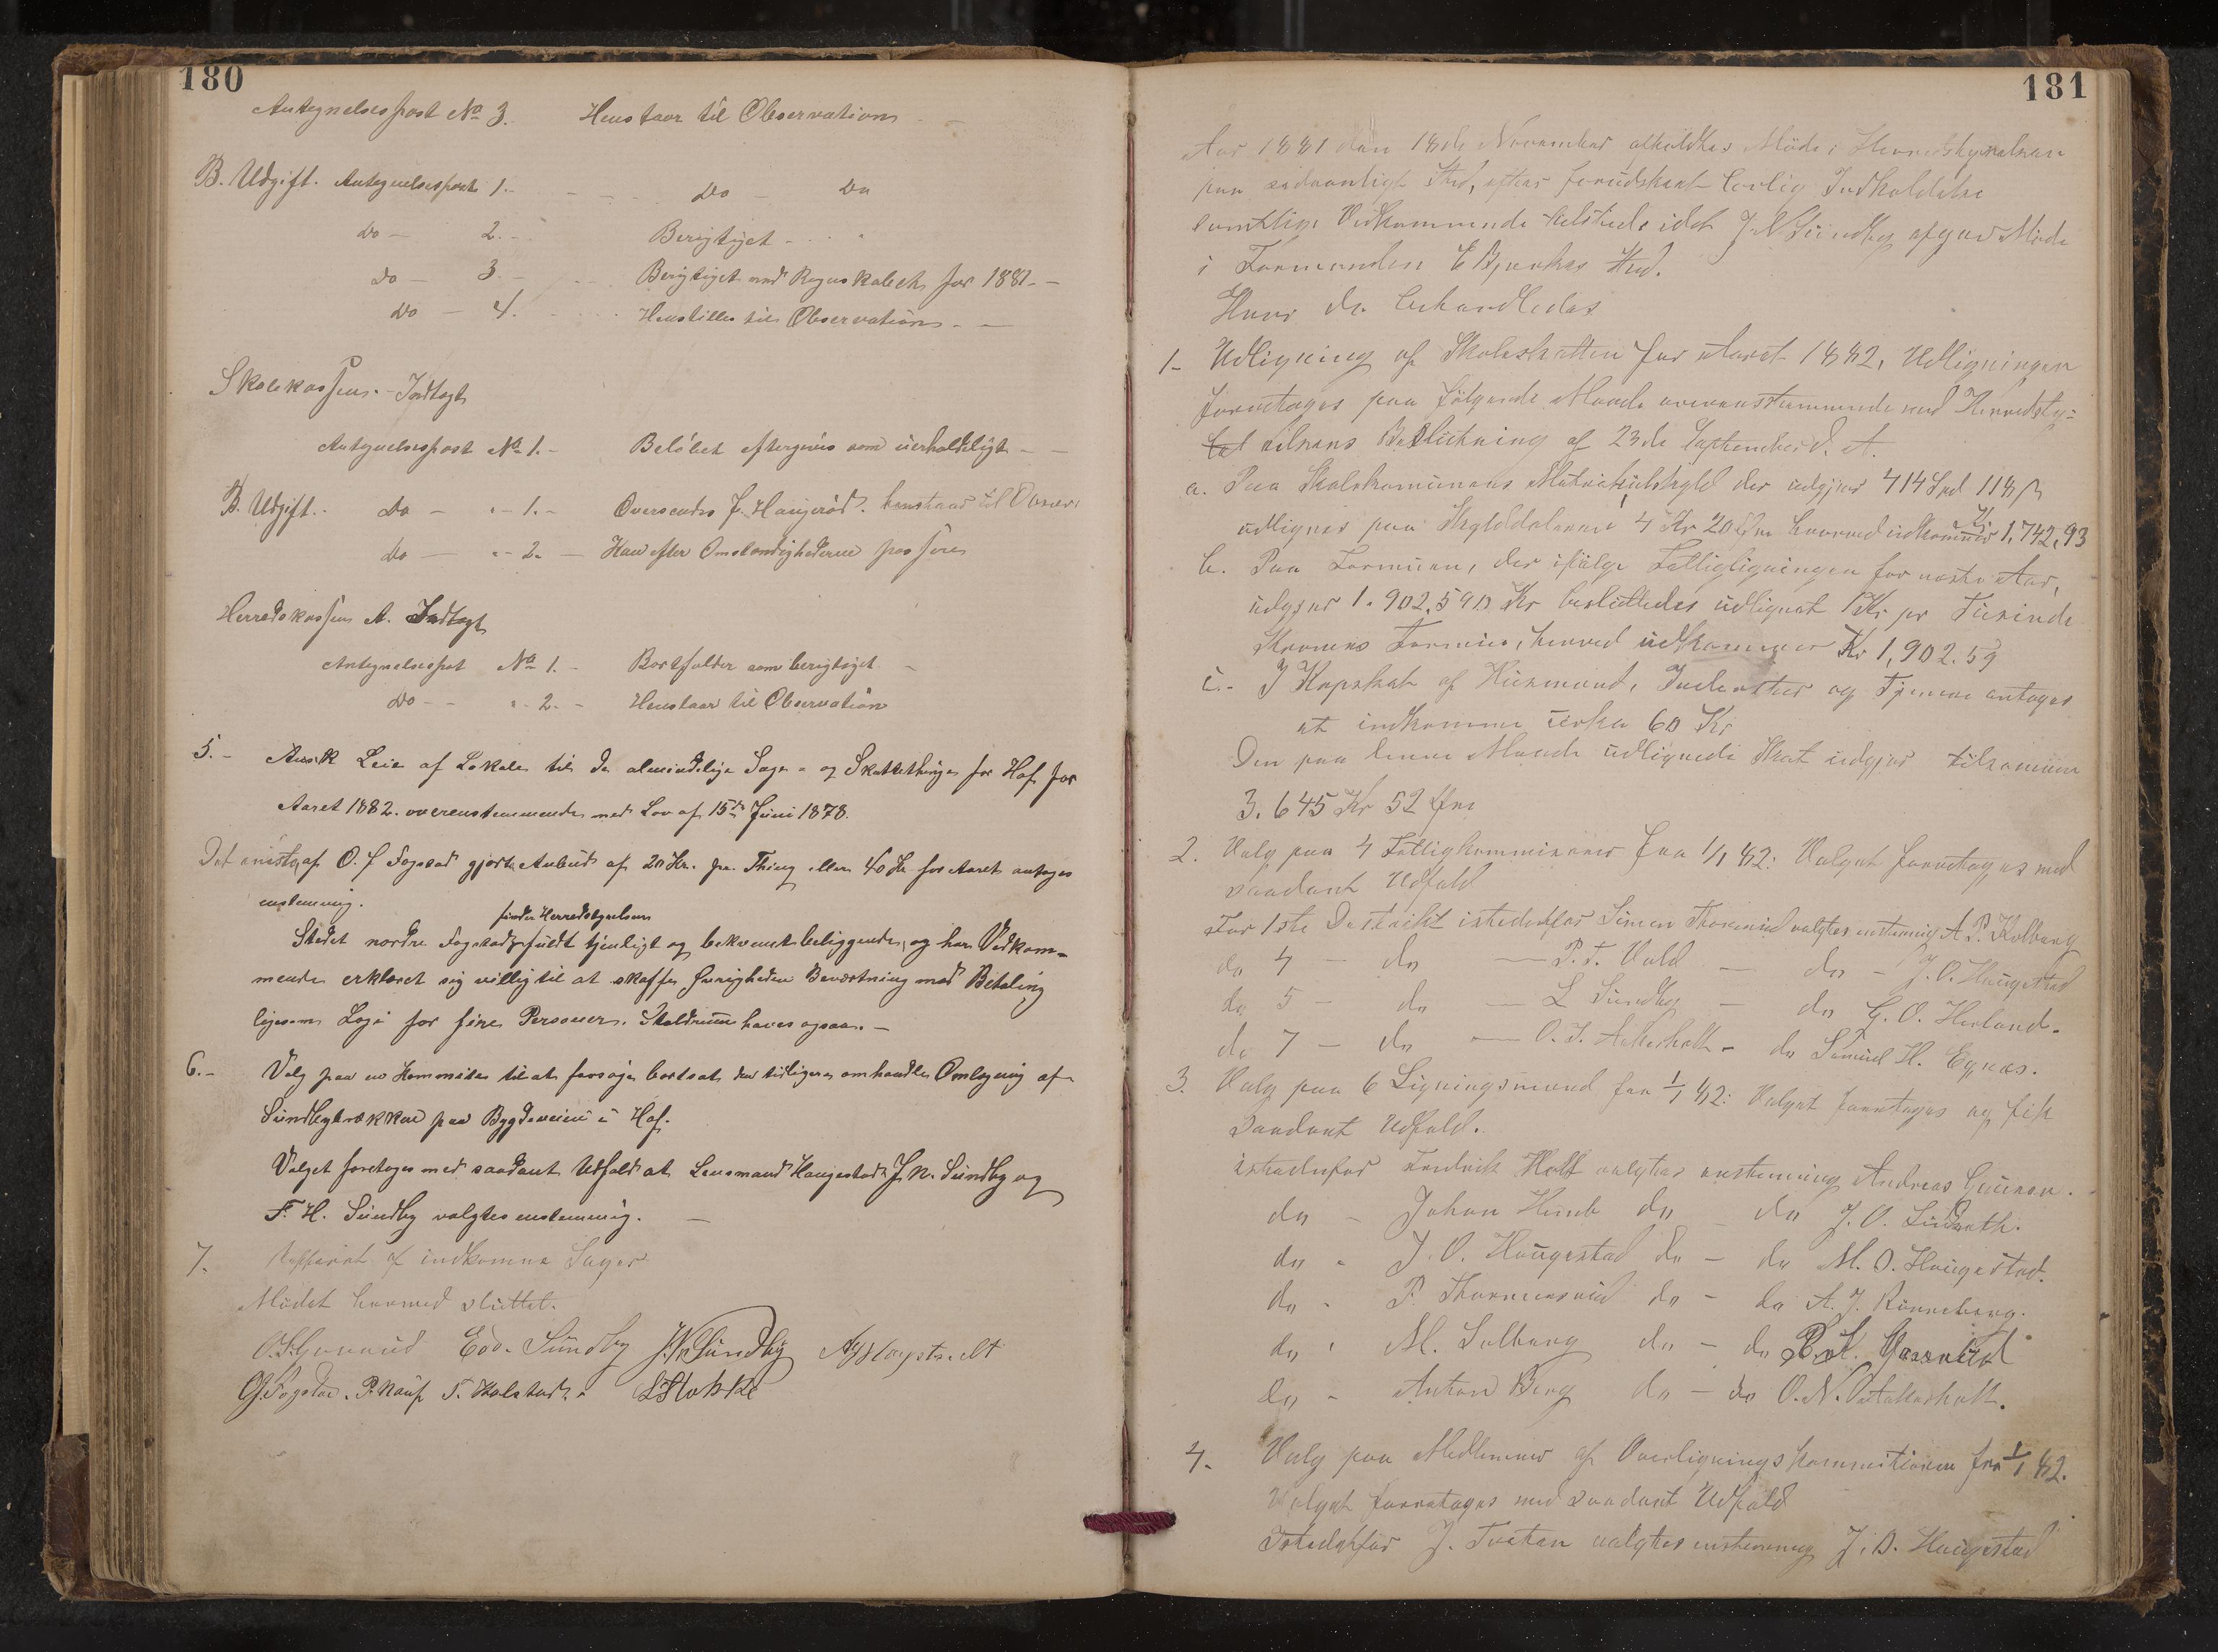 180
Antegnelsespost No 3. Henstaar til Observation
B. Udgift. Antegnelsespost 1. - Do - Do
Do - 2. - Berigtiget -
do - 3 - Berigtiget med Regnskabet for 1881 -
Do - 4. Henstilles til Observation -
Skolekassen. - Indtægt
Antegnelsespost No 1. - Beløbet eftergives som uerholdeligt -
B. Udgift. Do - " - 1. - Oversendes J. Haugerød. henstaar til Observ:
do - " - 2. - Kan efter Omstændighederne passere
Herredskassen A. Indtægt
Antegnelsespost No 1. - Bortfalder som berigtiget -
Do - - " - 2. - Henstaar til Observation
5. - Leie af Lokale til de almindelige Sage- og Skattethinge for Hof for
Aaret 1882. overenstemmende med Lov af 15de Juni 1878.
Det af O. J Fogstad gjorte Anbud af 20 Kr. pr. Thing eller 40 Kr for Aaret antoges
enstemmig.
finder Herredstyrelsen
Stedet nordre Fogstad fuldt tjenligt og bekvemt beliggende, og har Vedkom-
mende erklæret sig villig til at skaffe Øvrigheden Beværtning mod Betaling
ligesom Logi for fire Personer. Staldrum haves ogsaa. -
6. - Valg paa en Kommite til at forsøge bortsat den tidligere omhandlede Omlægning af
Sundbybakken paa Bygdeveien i Hof.
Valget foretoges med saadant Udfald at Lensmand Haugestad, J. N. Sundby og
F. H. Sundby valgtes enstemmig. -
7. Refferat af indkomne Sager
Mødet hermed sluttet.
Edv. Sundby J. N. Sundby
O J Fogstad. P. Kaup T. Holstad. L Stokke
181
Aar 1881 den 18de November afholdtes Møde i Herredstyrelsen
paa sædvanligt Sted, efter forudskeet lovlig Indkaldelse
samtlige Vedkommende tilstede idet J. N Sundby afgav Møde
i Formanden E Bjerkes Sted.
Hvor da behandledes
1 - Udligning af Skoleskatten for Aaret 1882, Udligningen
foretages paa følgende Maade overensstemmende med Herredsty-
relsens Beslutning af 23de September d. A.
a. Paa Skolekommunens Matrikulskyld der udgjør 414 Spd 118 β
udlignes paa Skylddaleren 4 Kr 20 Øre hvorved udkommer Kr 1,742,93
b. Paa Formuen, der ifølge Fattigligningen for næste Aar,
udgjør 1.902,590 Kr besluttedes udlignet 1 Kr pr Tusinde
Kroners Formue, herved udkommer Kr 1,902.59
c. - I Kopskat af Husmænd, Inderster og Tjenere antages
at indkomme cirka 60 Kr
Den paa denne Maade udlignede Skat udgjør tilsammen
3.645 Kr 52 Øre
2. Valg paa 4 Fattigkommisærer fra 1/1 82: Valget foretoges med
saadant Udfald
For 1ste Distrikt istedetfor Simen Thorsrud valgtes enstemmig A. P. Kolberg
do 4 - do - P. T. Vold - do - J. O. Haugestad
do 5 - do - L Sundby - do G. O. Herland.
do 7 - do - O. J. Askerholt - do Samuel H. Egnæs.
3. Valg paa 6 Ligningsmænd fra 1/1 82: Valget foretoges og fik
saadant Udfald.
istedenfor Fredrik Holt valgtes enstemmig Andreas Gunsen.
do - Johan Himb do - do J. O.
do - J. O. Haugestad do - do M. O. Haugestad.
do - P. Thormansrud do - do A. J. Rønneberg.
do - M. Solberg do - do
do - Anton Berg do - do O. N. Askerholt.
4. Valg paa Medlemmer af Overligningskommitionen fra 1/1 82.
Valget foretoges med saadant Udfald
Istedetfor J. Tveten valgtes enstemmig J. O. Haugestad